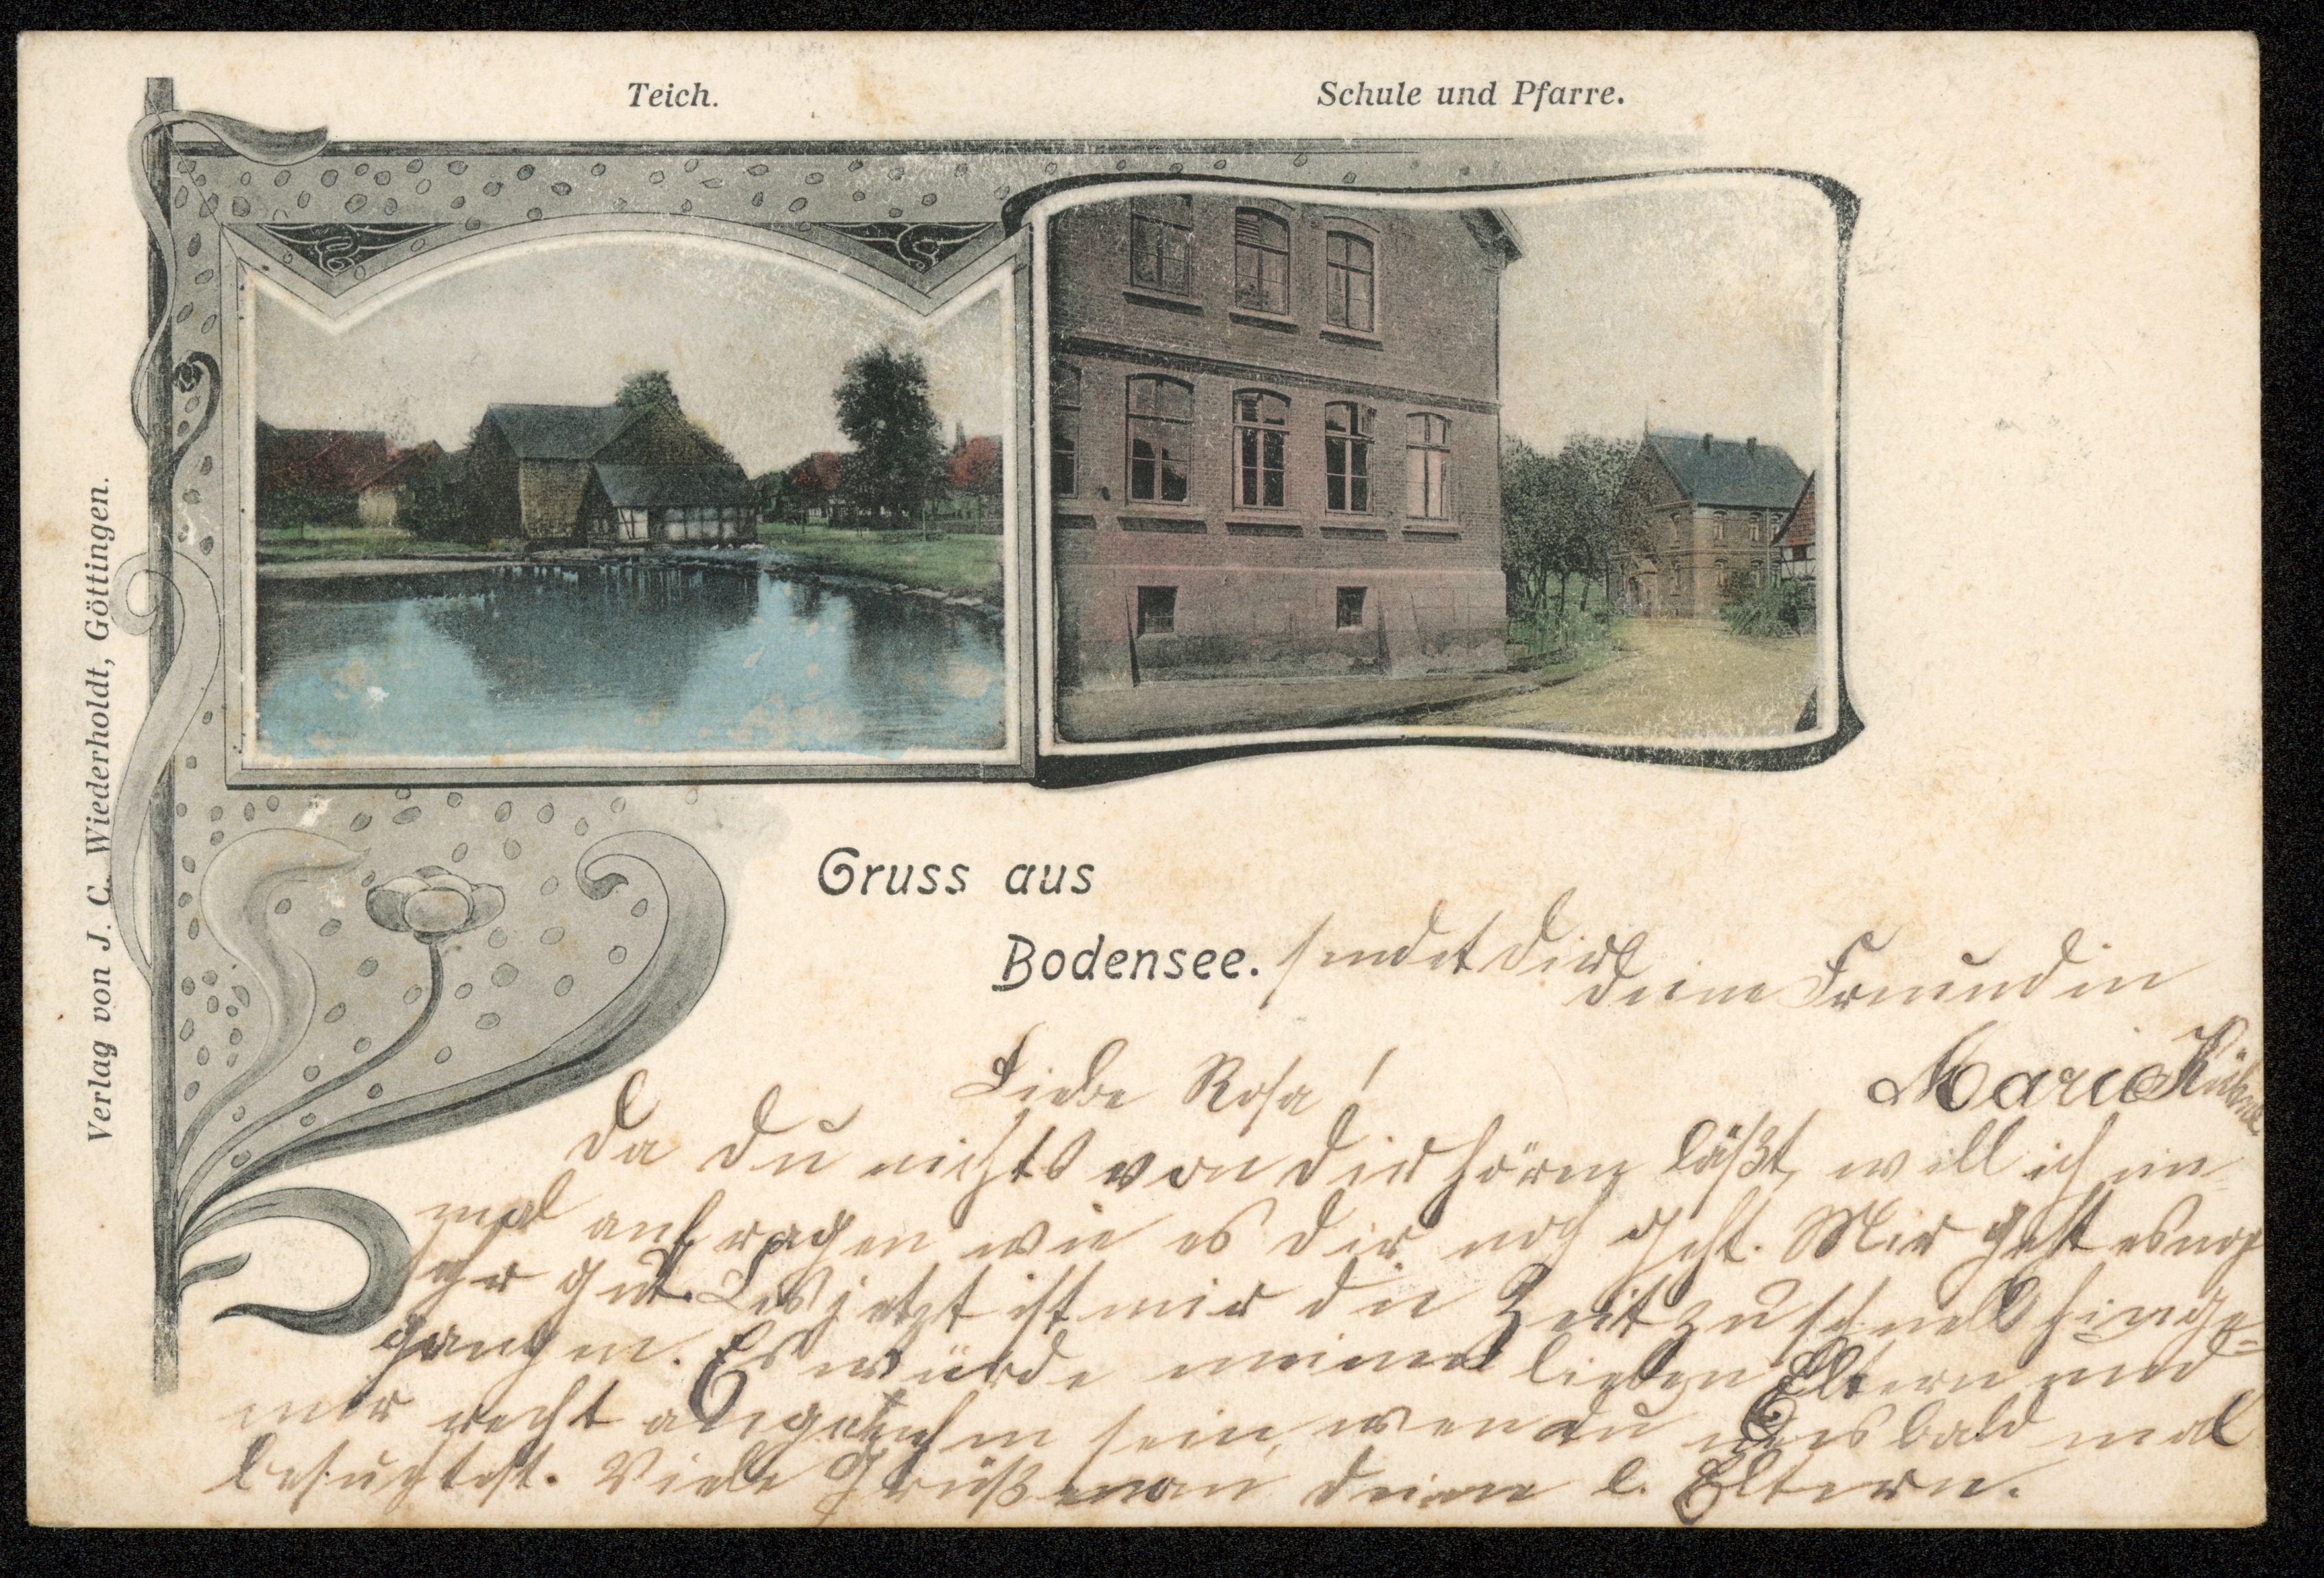 Teich.
Schule und Pfarre.
Verlag von J. C. Wiederholdt, Göttingen.
Gruss aus
Bodensee. sendet dir
deine Freundin
Marie Kühne
Liebe Rosa!
Da du nichts von dir hören läßt, will ich ein=
mal anfragen wie es dir noch geht. Mir geht es noch
sehr gut. Bis jetzt ist mir die Zeit zu schnell hinge=
gangen. Es würde meinen lieben Eltern und
mir recht angenehm sein, wen du uns bald mal
besuchtest. Viele Grüße an deine l. Eltern.